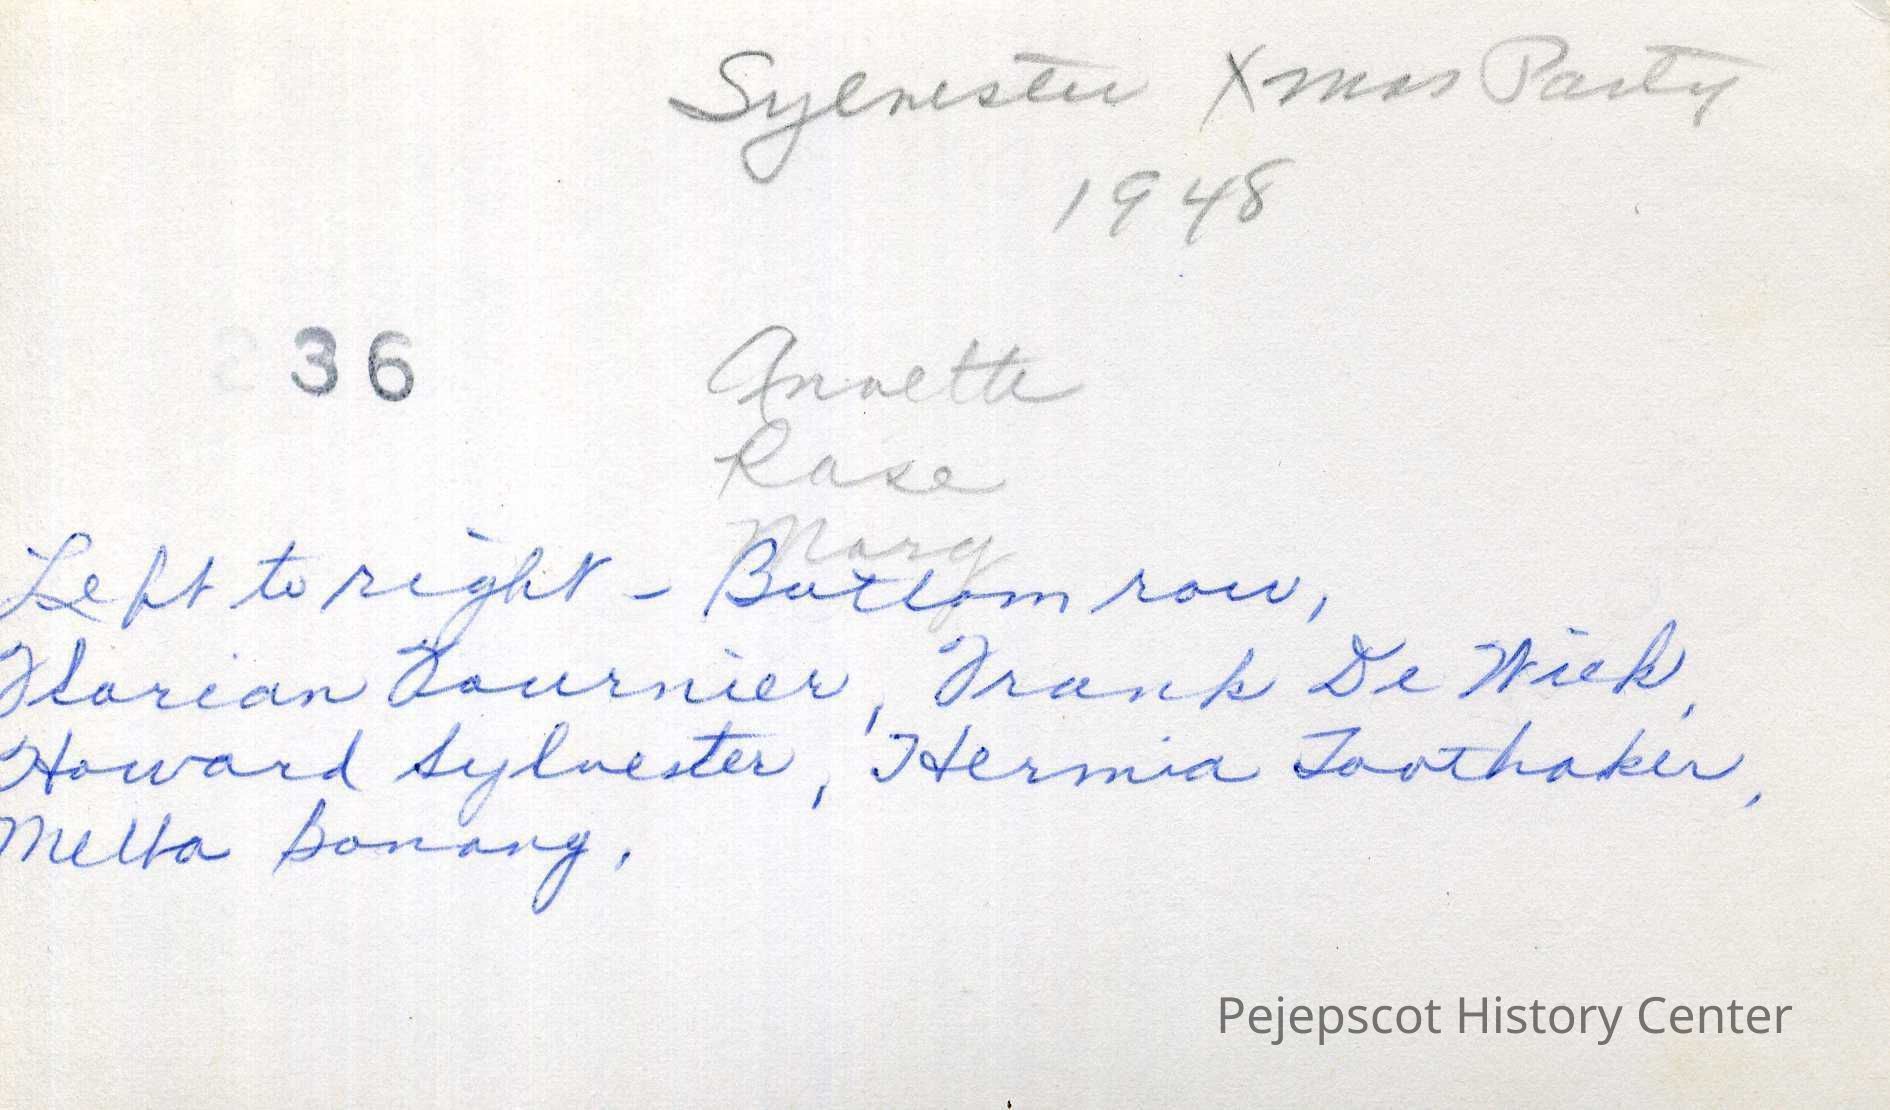 Sylvester Xmas Party
1948
36
Annette
Rose
Mary
Left to right - Bottom row,
Florian Fournier, Frank De Wick,
Howard Sylvester, Hermia Toothaker,
Melba Bonang.
Pejepscot History Center